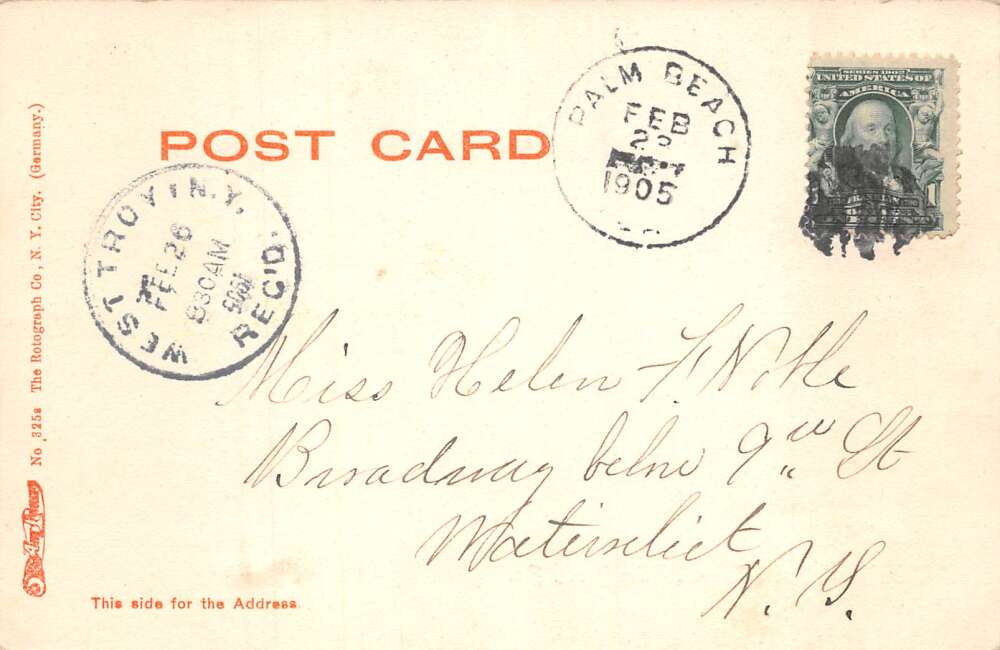 POST CARD
PALM BEACH
FEB
1905
SERIES 1902
UNITED STATES OF
AMERICA
WEST TROY N.Y.
FEB 26
830AM
1905
REC'D.
Miss Helen F. Noble
Broadway below 9th St
Watervliet
N. Y.
No 325a The Rotograph Co, N. Y. City. (Germany.)
This side for the Address.